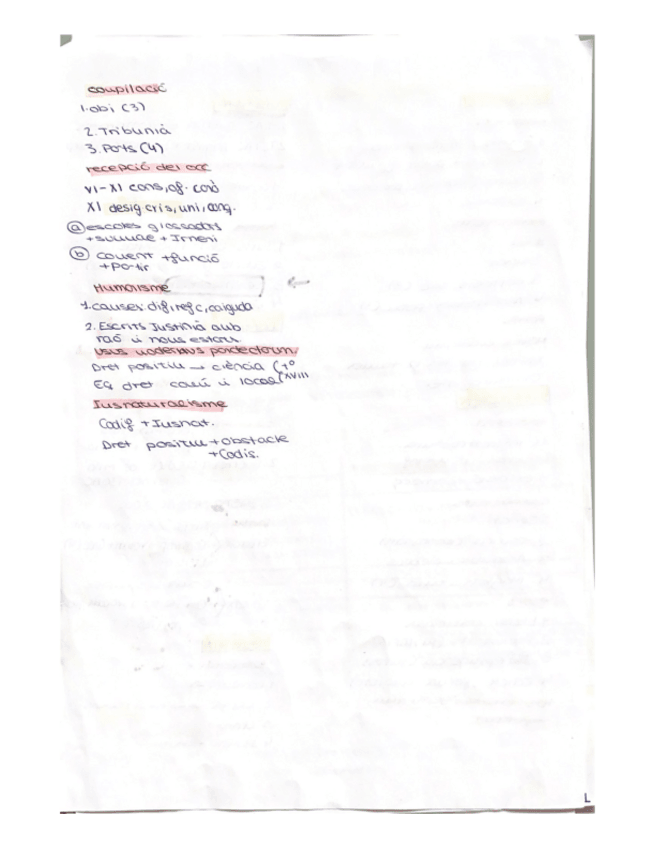 compilació
1. obj (3)
2. Tribunià
3. Parts (4)
recepció del occ
VI-XI cons, of.
XI desig cris, uni,
a escoles glossadors
+ summae + Irneri
b + funció
Humanisme
1. causes: dif, ref c, caiguda
2. Escrits Justinià amb
raó i nous
usus modernus pandectarum
Dret positiu → ciència
XVIII
EQ dret comú i local
Iusnaturalisme
Codif + Iusnat.
Dret positiu + obstacle
+ Codis.
L